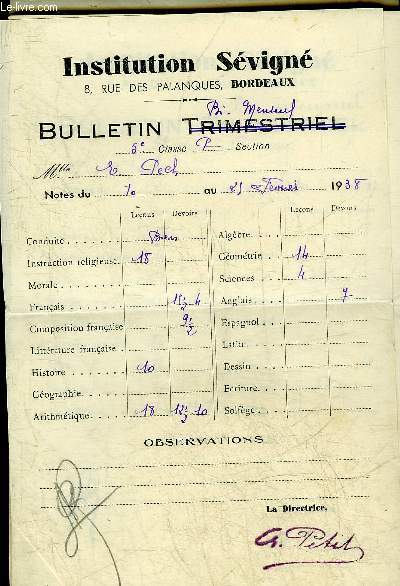 www.le-livre.com
Institution Sévigné
8, RUE DES PALANQUES, BORDEAUX
Bi-Mensuel
BULLETIN TRIMESTRIEL
5e Classe P Section
Mlle Pech
Notes du 10 au 25 Février 1938
Leçons Devoirs Leçons Devoirs
Conduite Bien Algèbre
Instruction religieuse 18 Géométrie 14
Morale Sciences 4
Français 4 Anglais 7
Composition française Espagnol
Littérature française Latin
Histoire 10 Dessin
Géographie Ecriture
Arithmétique 18 10 Solfège
OBSERVATIONS
La Directrice,
G. Petit